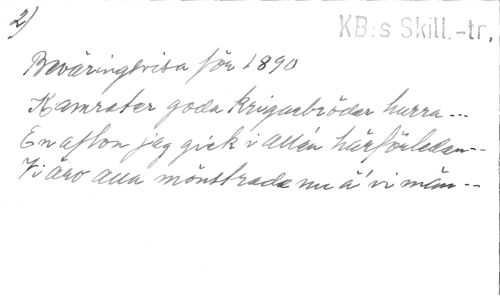 2)
KB:s Skill.-tr.
Beväringsvisa för 1890
Kamrater goda krigarbröder hurra --
En afton jag gick i allén härförleden --
Vi äro alla mönstrade nu ä' vi män --